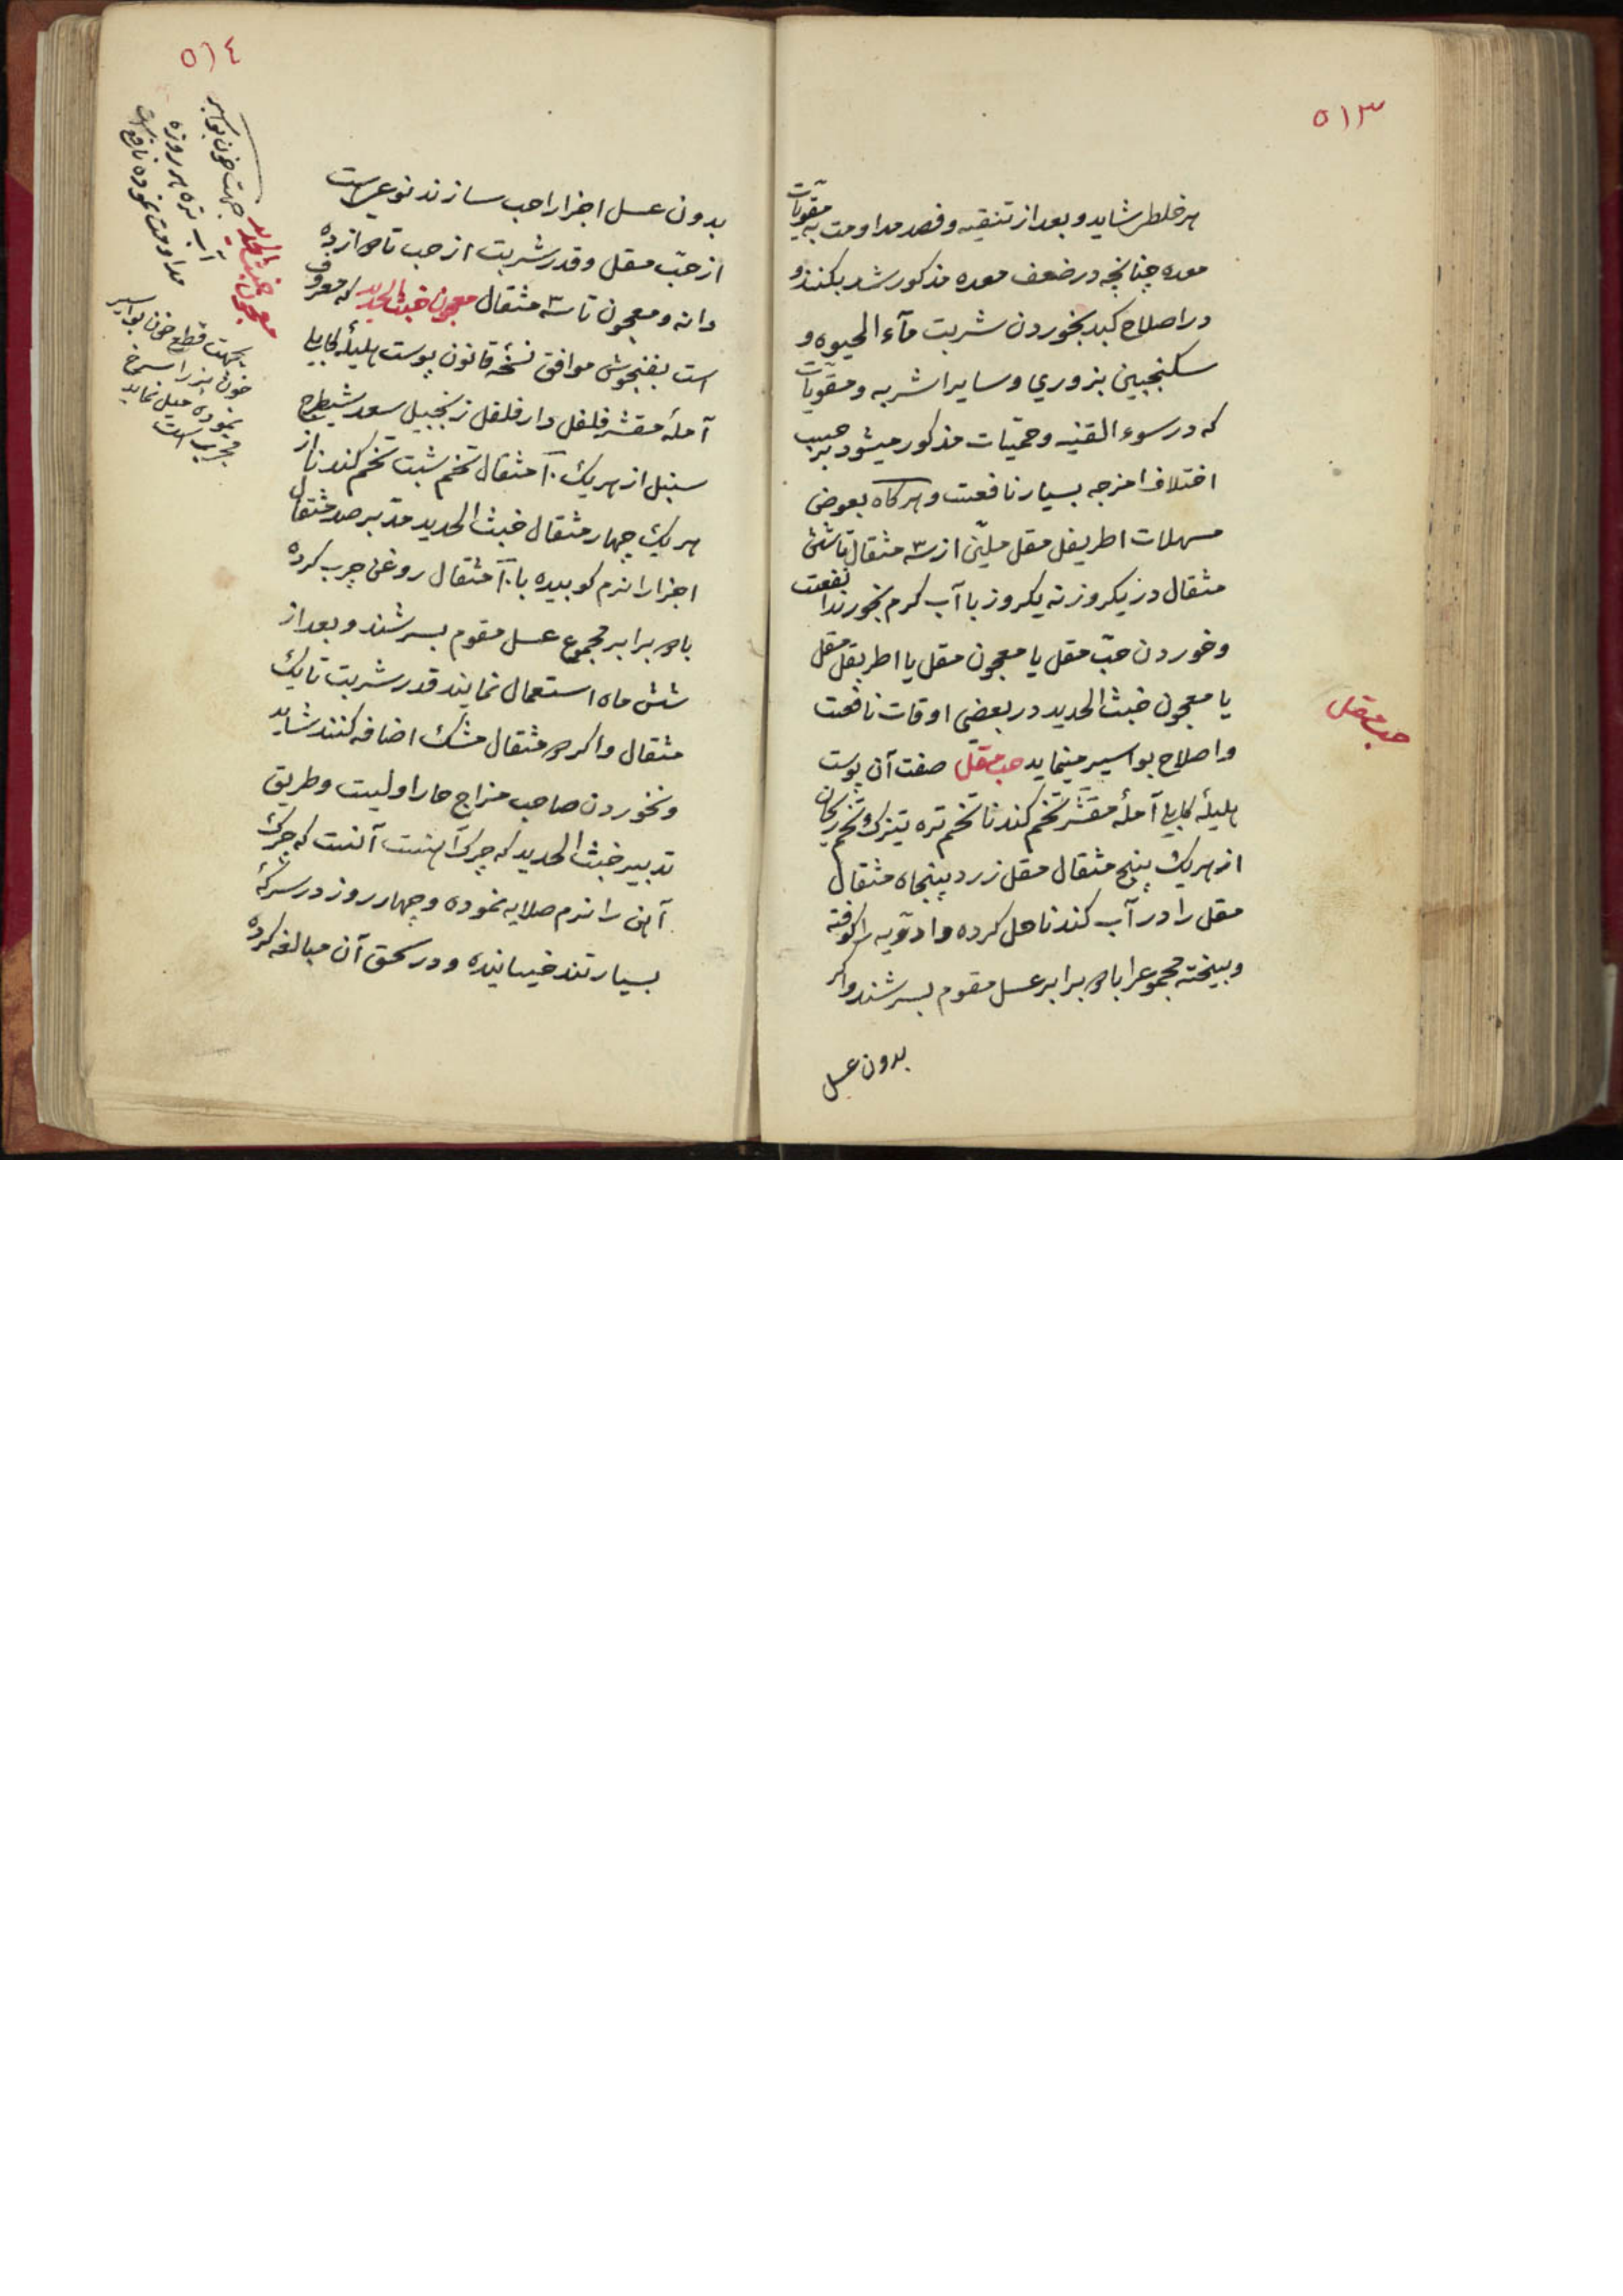 ۵۱۳
هر خلط شاید و بعد از تنقیه و فصد مداومت به مقویات
معده چنانچه در ضعف معده مذکور شد بکنند و
در اصلاح کبد بخوردن شربت مآء الحیوه و
سکنجبین بزوری و سایر اشربه و مقویات
که در سوء القنیه و حمّیات مذکور میشود بر حسب
اختلاف امزجه بسیار نافعت و هر کاه بعوض
مسهلات اطریفل مقل ملیّن از ۳ مثقال تا شش
مثقال در یکروز نه یکروز با آب کرم بخورند انفعت
و خوردن حبّ مقل یا معجون مقل یا اطریفل مقل
یا معجون خبث الحدید در بعضی اوقات نافعت
و اصلاح بواسیر مینماید حب مقل صفت آن پوست
هلیلۀ کابلی آملۀ مقشر تخم کندنا تخم تره تیزک و تخم ریحان
از هریک پنج مثقال مقل زرد پنجاه مثقال
مقل را در آب کندنا حل کرده و ادویه را کوفته
و بیخته مجموعرا با دو برابر عسل مقوم بسرشند و اکر
بدون عسل
حب مقل
۵۱٤
بدون عسل اجزا را حب سازند نوعی است
از حبّ مقل و قدر شربت از حب تا دوازده
دانه و معجون تا ۳ مثقال معجون خبث الحدید که معروف
است بفنجوش موافق نسخۀ قانون پوست هلیلۀ کابلی
آملۀ مقشر فلفل دارفلفل زنجبیل سعد شیطرج
سنبل از هریک ۱۰ مثقال تخم شبت تخم کندنا از
هریک چهار مثقال خبث الحدید مدّبر صد مثقال
اجزا را نرم کوبیده با ۲۰ مثقال روغن چرب کرده
با دو برابر مجموع عسل مقوم بسرشند و بعد از
شش ماه استعمال نمایند قدر شربت تا یک
مثقال و اکر دو مثقال مشک اضافه کنند شاید
و نخوردن صاحب مزاج حار اولیت و طریق
تدبیر خبث الحدید که چرک آهنست آنست که چرک
آهن را نرم صلایه نموده و چهارده روز در سرکۀ
بسیار تند خیسانیده و در سحق آن مبالغه کرده
معجون خبث الحدید
جهت خون بواسیر
آب تره هر روزه
مداومت نموده نافع است
بجهت قطع خون بواسیر
خون بز را سرخ
نموده میل نماید
مجرب است